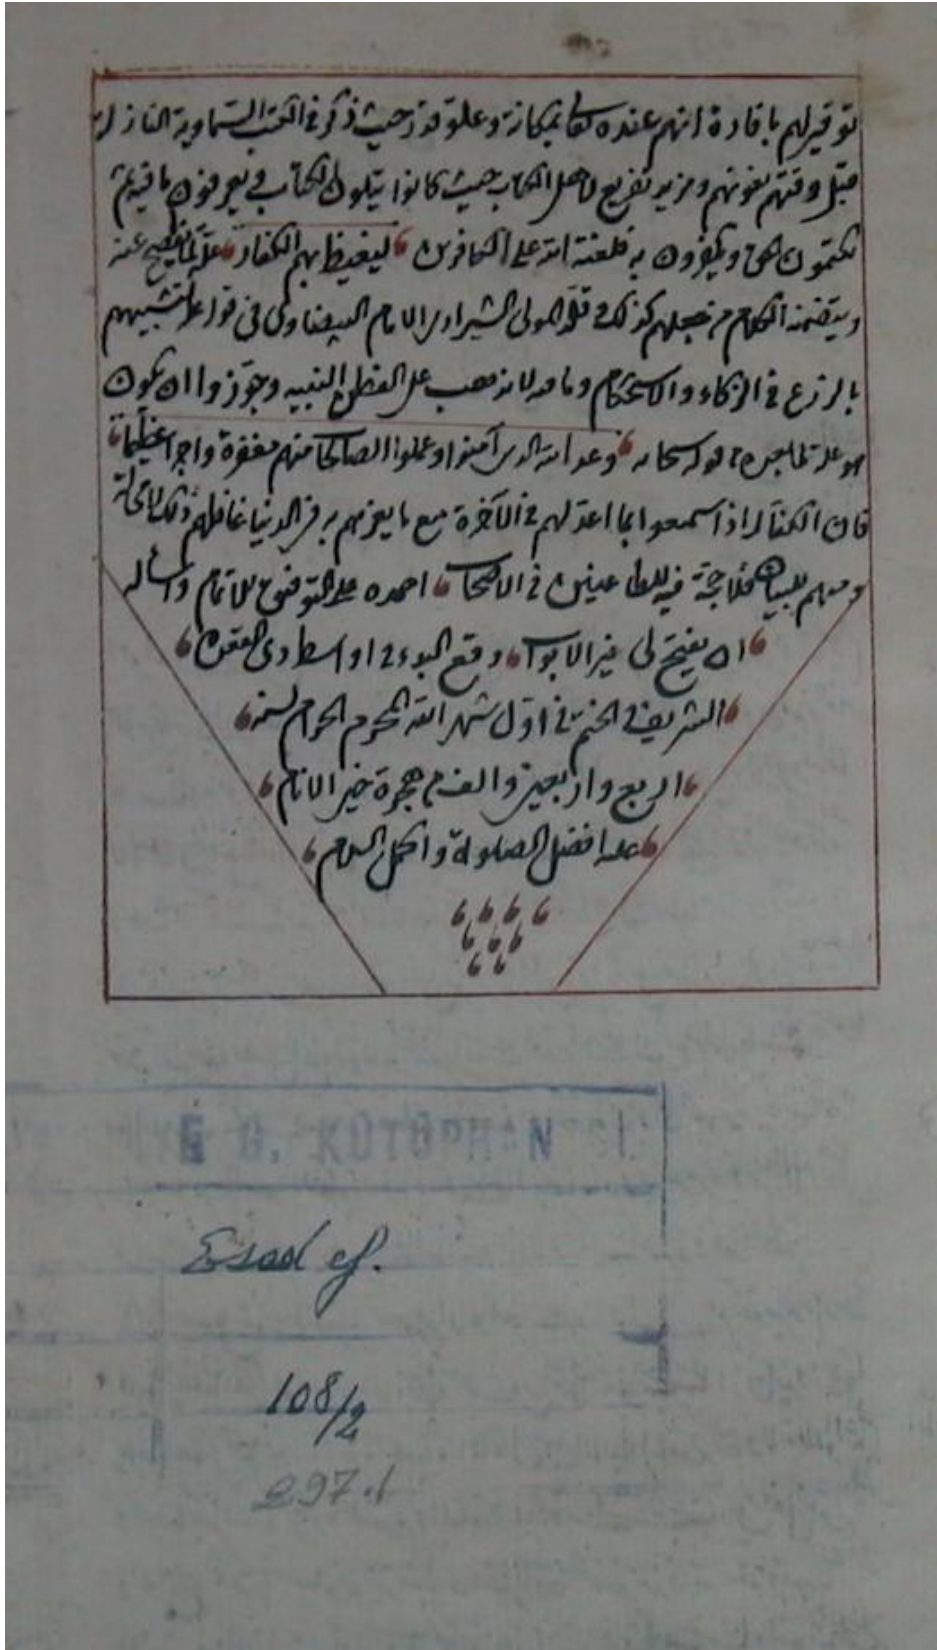 توقيرلهم بافادة انهم عنده تعالى بمكانة وعلو قدر حيث ذكر في الكتب السماوية النازلة
قبل وقتهم بنعوتهم ومزيد تقريع لاهل الكتاب حيث كانوا يتلون الكتاب ويعرفون ما فيه ثم
يكتمون الحق ويكفرون به فلعنة الله على الكافرين ليغيظ بهم الكفار علة لما يفصح عنه
ويتضمنه الكلام من جعلهم كذلك المولى الشيرازى الامام البيضاوى فى قوله علة لتشبيههم
بالزرع في الزكاء والاستحكام على الفطن النبيه وجوزوا ان يكون
هو علة لما بعده من قوله سبحانه وعد الله الذين آمنوا وعملوا الصالحات منهم مغفرة واجرا عظيما
فان الكفار اذا سمعوا بما اعد لهم في الآخرة مع ما يعزهم به في الدنيا غاظهم ذلك لا محالة
ومنهم للبيان فلا حجة فيه للطاعنين في الاصحاب احمده على التوفيق للاتمام واسأله
ان يفتح لى خير الابواب وقع البدء في اواسط ذى القعدة
الشريف والختم في اول شهر الله المحرم الحرام لسنة
اربع واربعين والف من هجرة خير الانام
عليه افضل الصلوة واكمل السلام
E G. KÜTÜPHAN
Esad ef.
108/2
297.1